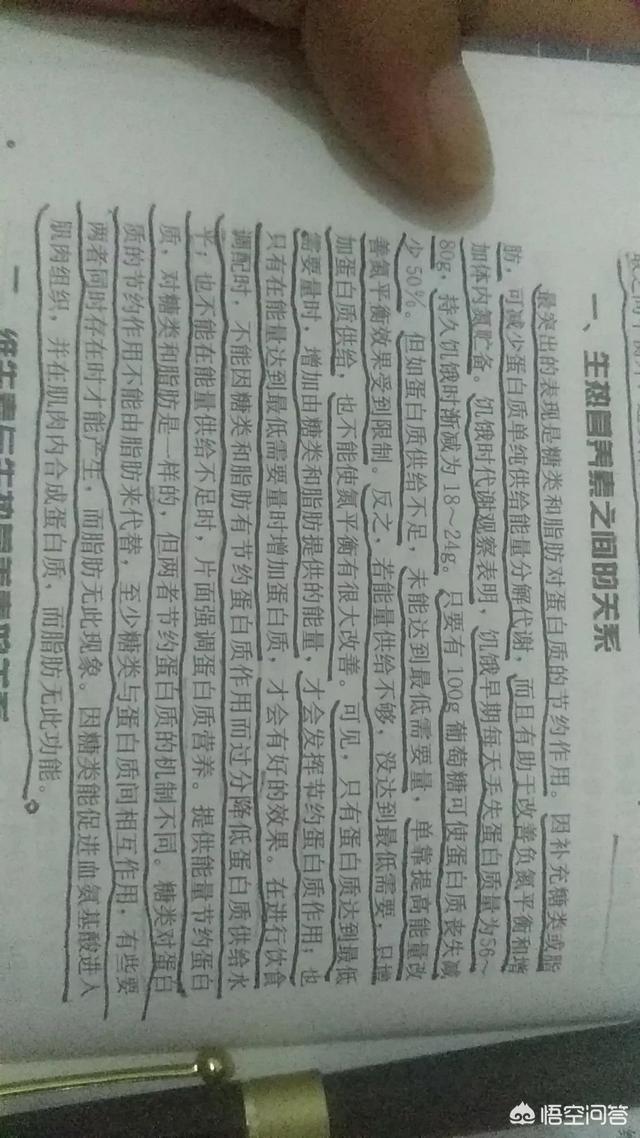 一、生热营养素之间的关系
最突出的表现是糖类和脂肪对蛋白质的节约作用。因补充糖类或脂
肪，可减少蛋白质单纯供给能量分解代谢，而且有助于改善负氮平衡和增
加体内氮贮备。饥饿时代谢观察表明，饥饿早期每天丢失蛋白质量为56～
80g，持久饥饿时渐减为18～24g。只要有100g葡萄糖可使蛋白质丧失减
少50%。但如蛋白质供给不足，未能达到最低需要量，单靠提高能量改
善氮平衡效果受到限制。反之，若能量供给不够，没达到最低需要，只增
加蛋白质供给，也不能使氮平衡有很大改善。可见，只有蛋白质达到最低
需要量时，增加由糖类和脂肪提供的能量，才会发挥节约蛋白质作用；也
只有在能量达到最低需要量时增加蛋白质，才会有好的效果。在进行饮食
调配时，不能因糖类和脂肪有节约蛋白质作用而过分降低蛋白质供给水
平；也不能在能量供给不足时，片面强调蛋白质营养。提供能量节约蛋白
质，对糖类和脂肪是一样的，但两者节约蛋白质的机制不同。糖类对蛋白
质的节约作用不能由脂肪来代替，至少糖类与蛋白质间相互作用，有些要
两者同时存在时才能产生，而脂肪无此现象。因糖类能促进血氨基酸进入
肌肉组织，并在肌肉内合成蛋白质，而脂肪无此功能。
维生素与生热营养素
悟空问答